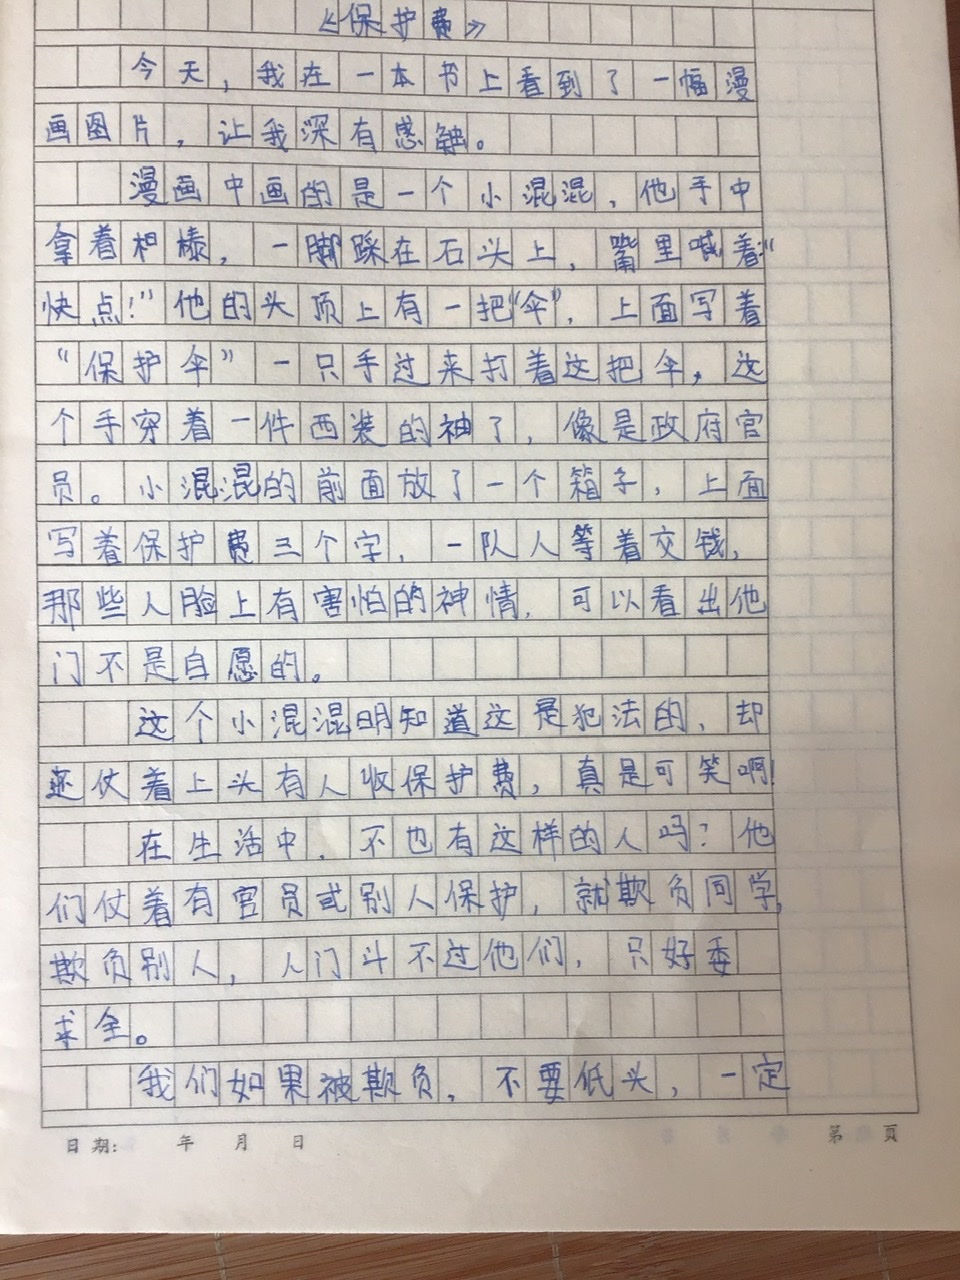 《保护费》
今天，我在一本书上看到了一幅漫
画图片，让我深有感触。
漫画中画的是一个小混混，他手中
拿着棍棒，一脚踩在石头上，嘴里喊着:“
快点！”他的头顶上有一把“伞”，上面写着
“保护伞”一只手过来打着这把伞，这
个手穿着一件西装的袖了，像是政府官
员。小混混的前面放了一个箱子，上面
写着保护费三个字，一队人等着交钱，
那些人脸上有害怕的神情，可以看出他
门不是自愿的。
这个小混混明知道这是犯法的，却
还仗着上头有人收保护费，真是可笑啊！
在生活中，不也有这样的人吗？他
们仗着有官员或别人保护，就欺负同学，
欺负别人，人门斗不过他们，只好委
求全。
我们如果被欺负，不要低头，一定
日期： 年 月 日
第 页